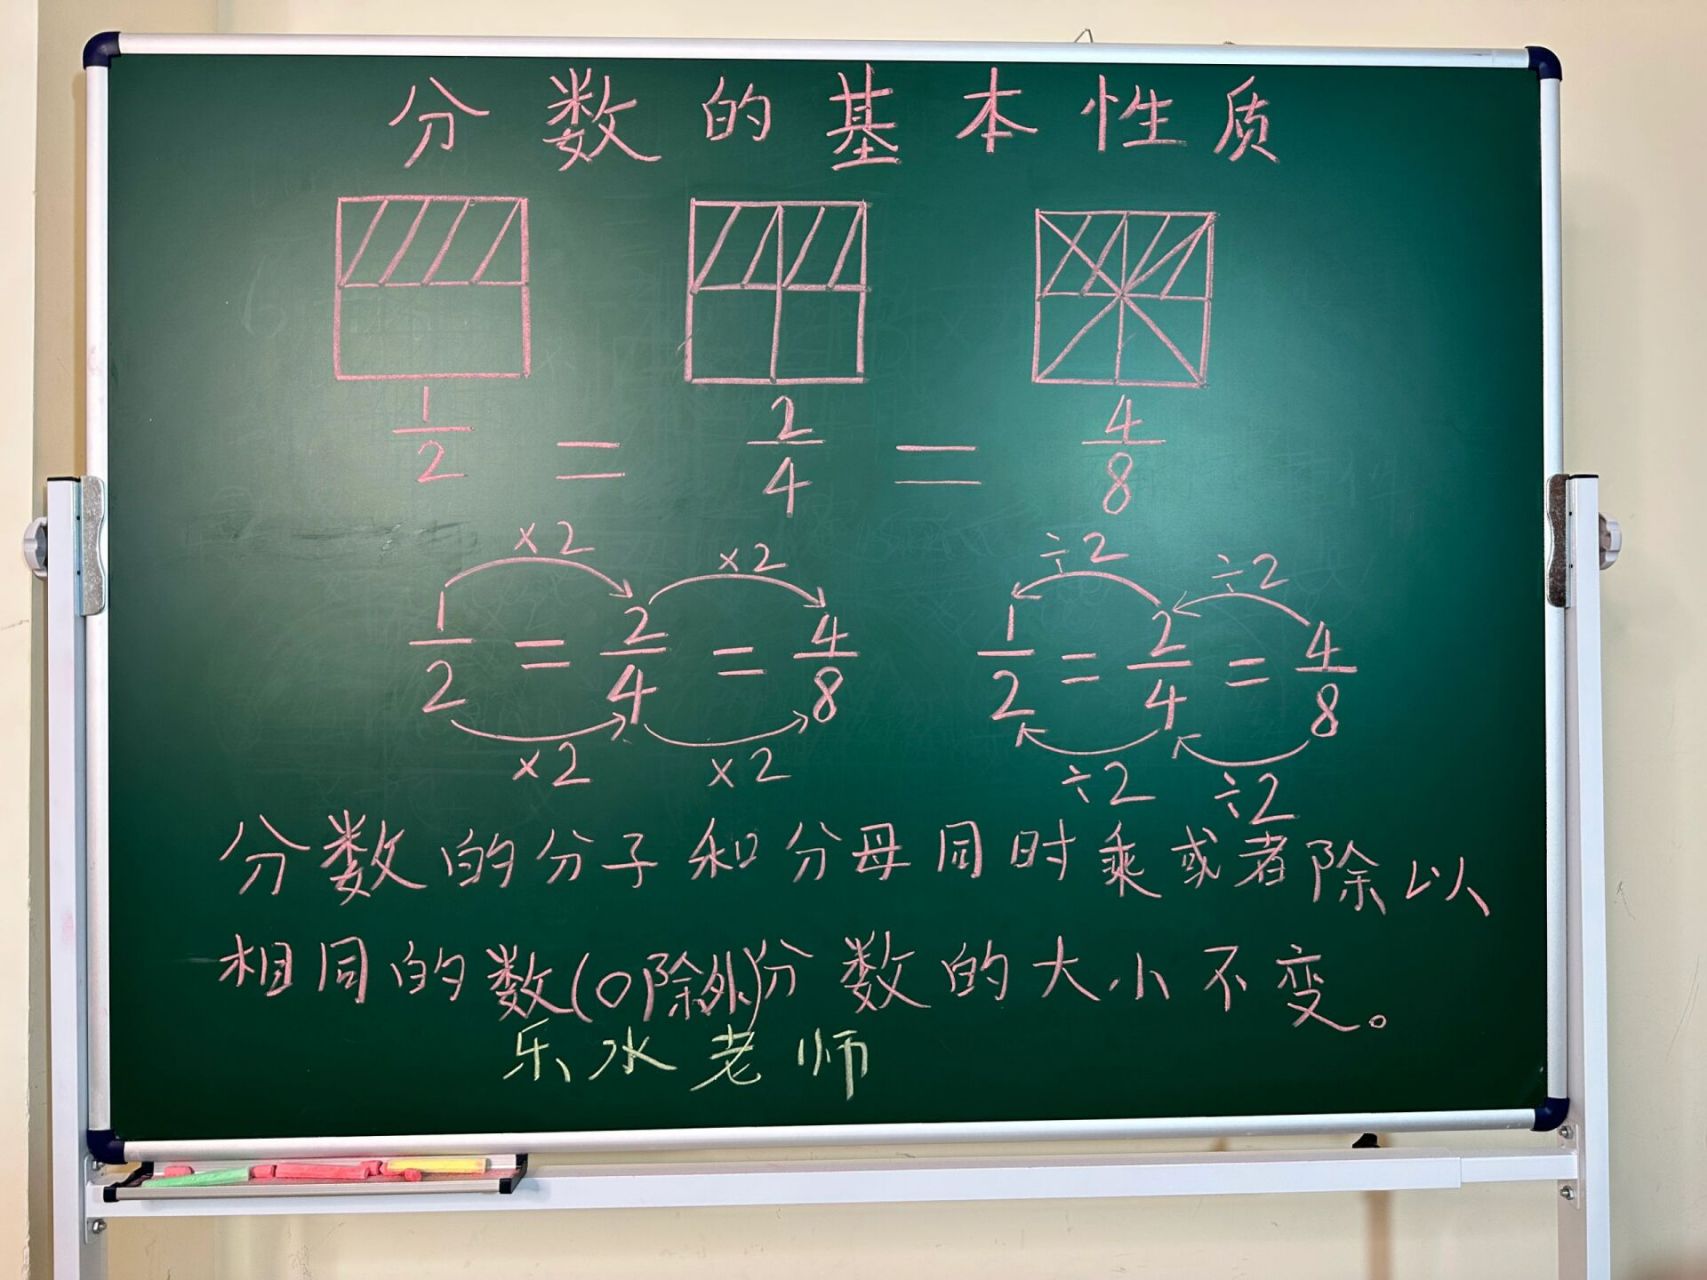 分数的基本性质
1/2 = 2/4 = 4/8
×2 ×2 ÷2 ÷2
1/2 = 2/4 = 4/8 1/2 = 2/4 = 4/8
×2 ×2 ÷2 ÷2
分数的分子和分母同时乘或者除以
相同的数(0除外)分数的大小不变。
乐水老师